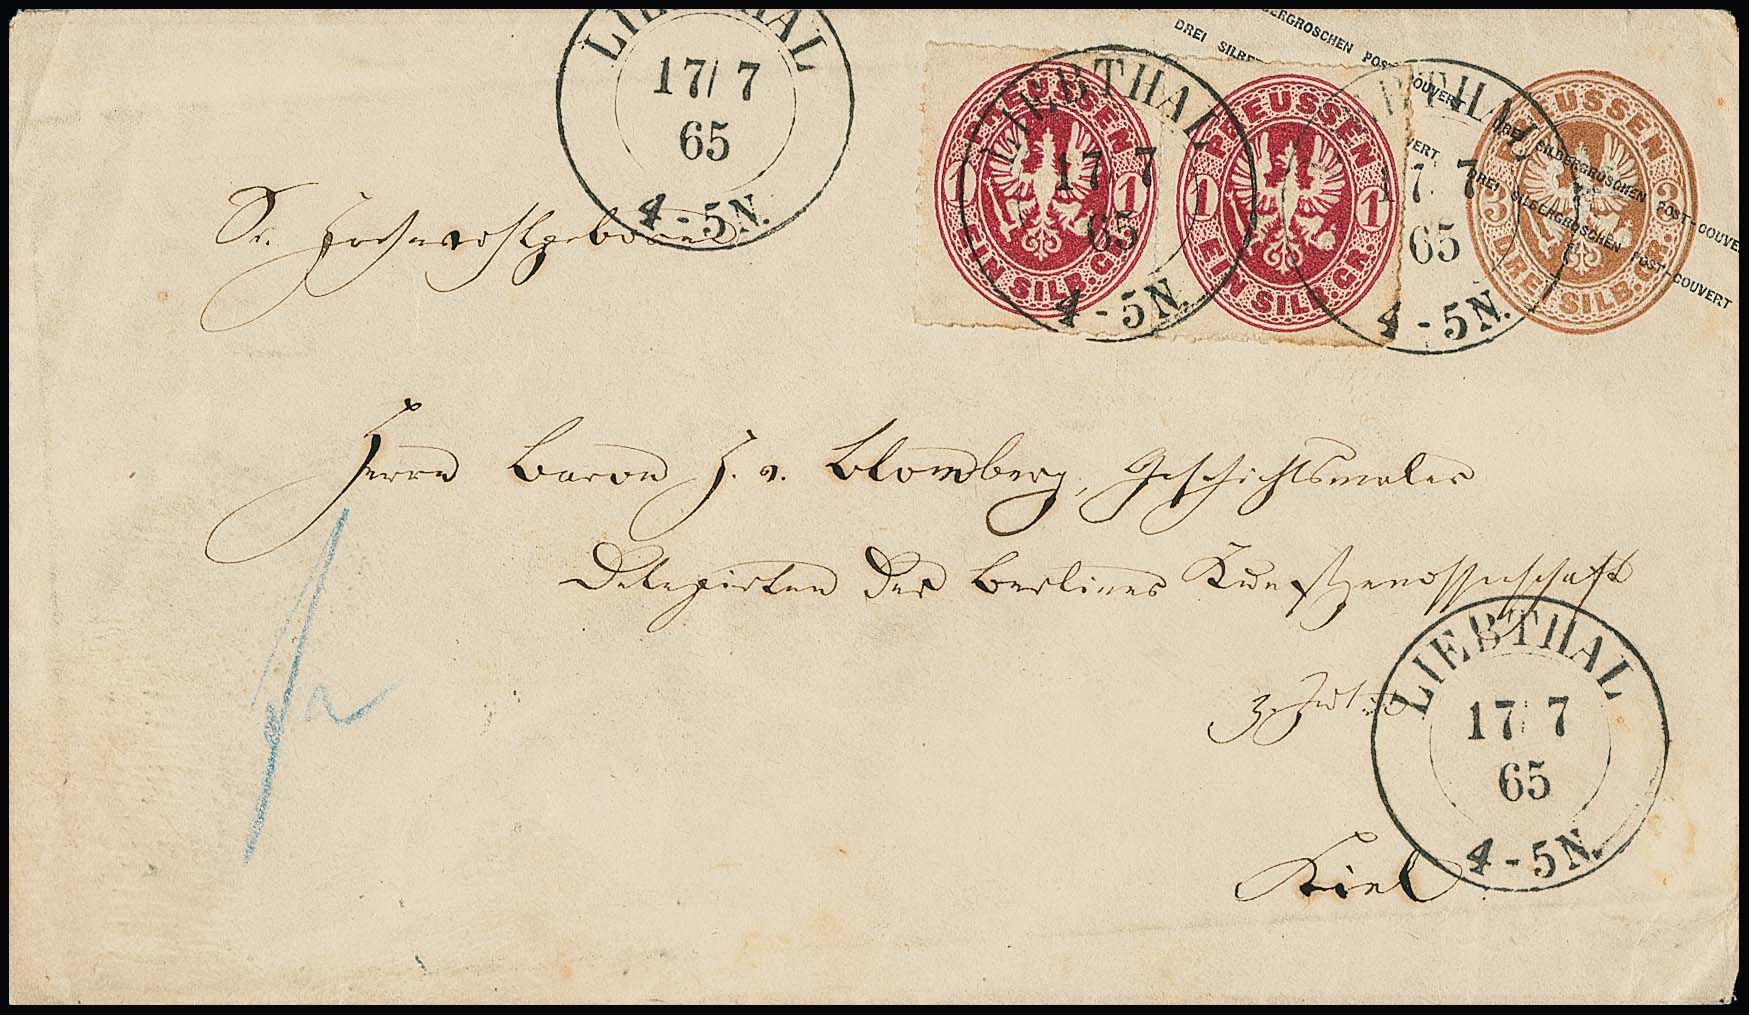 LIEBTHAL
17/7
65
4-5N.
DREI SILBERGROSCHEN POST-COUVERT
DREI SILBERGROSCHEN POST-COUVERT
DREI SILBERGROSCHEN POST-COUVERT
PREUSSEN
1 1
EIN SILB. GR.
LIEBTHAL
17 7
65
4-5N.
PREUSSEN
1 1
EIN SILB. GR.
LIEBTHAL
17 7
65
4-5N.
PREUSSEN
3 3
DREI SILB. GR.
Sr. Hochwohlgeboren
Herrn Baron H. v. Blomberg, Geschichtsmaler
Delegirten der Berliner Kunstgenossenschaft
z. Zeit
LIEBTHAL
17 7
65
4-5N.
Kiel